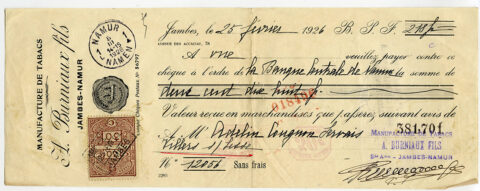 MANUFACTURE DE TABACS
A. Burniaux fils
JAMBES-NAMUR
NAMUR
1926
NAMEN
Jambes, le 25 février 1926 B. P. F. 218 f
A vue veuillez payer contre ce
chèque à l'ordre de la Banque Centrale de Namur la somme de
deux cent dix huit
Valeur reçue en marchandises que passerez suivant avis de
A M Gervais
MANUFACTURE DE TABACS
381.701
A. BURNIAUX FILS
JAMBES-NAMUR
Villers s/ Lesse
N° 12056 Sans frais